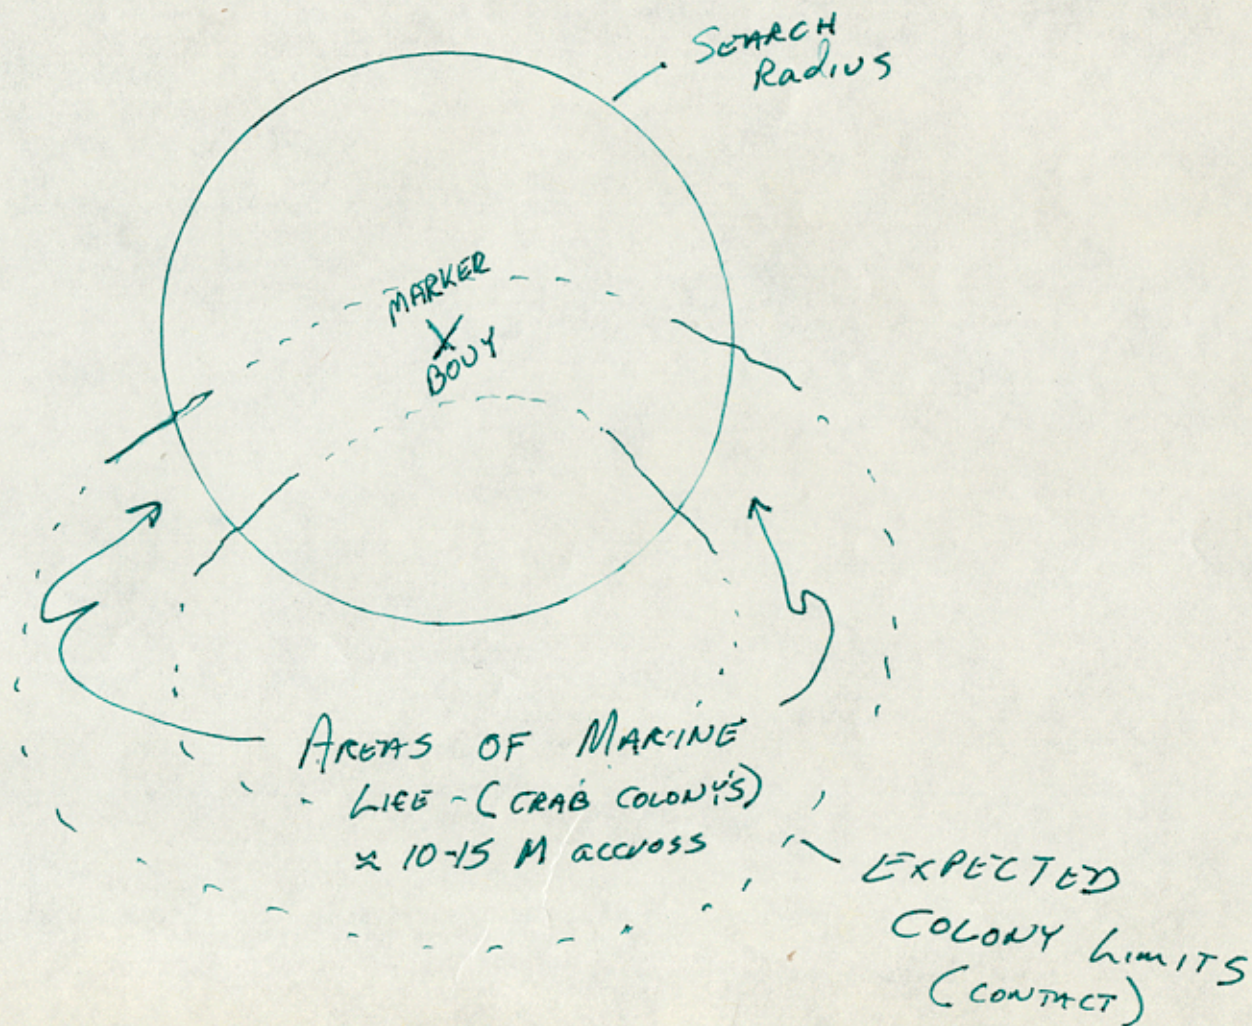 SEARCH
RADIUS
MARKER
X
BOUY
AREAS OF MARINE
LIFE - (CRAB COLONY'S)
≈ 10-15 M accross
EXPECTED
COLONY LIMITS
(CONTACT)